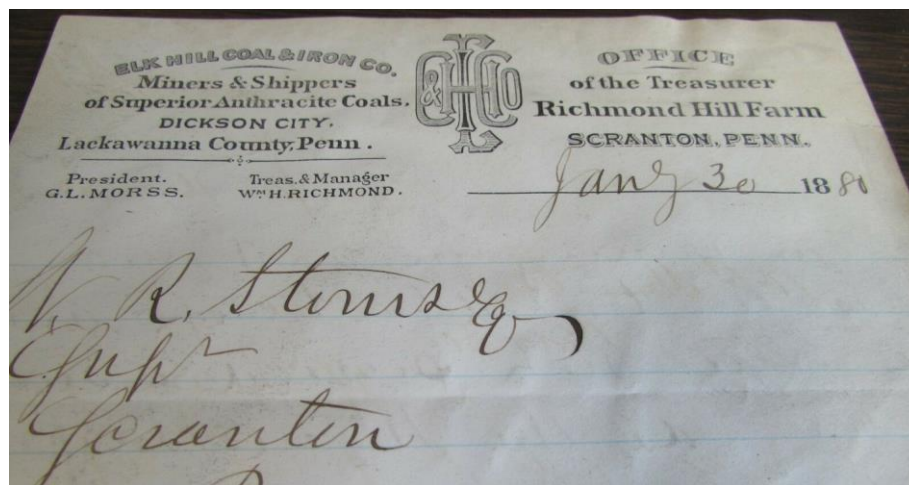 ELK HILL COAL & IRON CO.
Miners & Shippers
of Superior Anthracite Coals.
DICKSON CITY,
Lackawanna County, Penn.
President.
G.L. MORSS.
Treas. & Manager
Wm H. RICHMOND.
OFFICE
of the Treasurer
Richmond Hill Farm
SCRANTON, PENN.
Jany 30 1880
R. Storrs Esq
Supt
Scranton